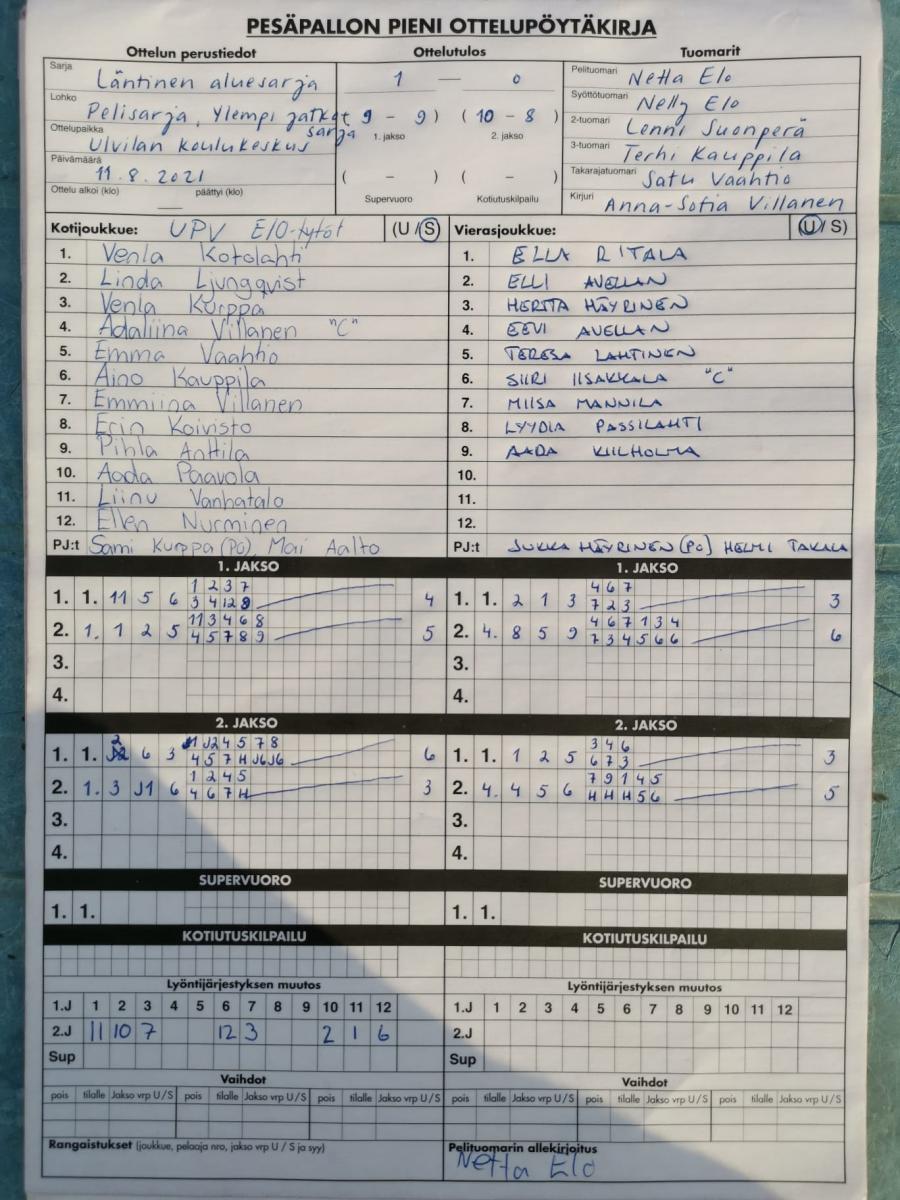 PESÄPALLON PIENI OTTELUPÖYTÄKIRJA
Ottelun perustiedot Ottelutulos Tuomarit
Sarja Läntinen aluesarja 1 — 0 Pelituomari Netta Elo
Lohko Pelisarja, Ylempi jatkosarja 9 - 9 ) ( 10 - 8 ) Syöttötuomari Nelly Elo
Ottelupaikka Ulvilan koulukeskus 1. jakso 2. jakso 2-tuomari Lenni Suonperä
Päivämäärä 11.8.2021 ( - ) ( - ) 3-tuomari Terhi Kauppila
Ottelu alkoi (klo) päättyi (klo) Supervuoro Kotiutuskilpailu Takarajatuomari Satu Vaahtio
Kirjuri Anna-Sofia Villanen
Kotijoukkue: UPV E/O-tytöt (U / S) Vierasjoukkue: (U / S)
1. Venla Kotolahti 1. ELLA RITALA
2. Linda Ljungqvist 2. ELLI AVELLAN
3. Venla Kurppa 3. HERTTA HÄYRINEN
4. Adaliina Villanen "C" 4. EEVI AVELLAN
5. Emma Vaahtio 5. TERESA LAHTINEN
6. Aino Kauppila 6. SIIRI IISAKKALA "C"
7. Emmiina Villanen 7. MIISA MANNILA
8. Erin Koivisto 8. LYYDIA PASSILAHTI
9. Pihla Anttila 9. AADA KIILHOLMA
10. Aada Paavola 10.
11. Liinu Vanhatalo 11.
12. Ellen Nurminen 12.
PJ:t Sami Kurppa (PO), Mari Aalto PJ:t JUKKA HÄYRINEN (PO) HELMI TAKALA
1. JAKSO 1. JAKSO
1 2 3 7 4 6 7
1. 1. 11 5 6 3 4 12 9 4 1. 1. 2 1 3 7 2 3 3
11 3 4 6 8 4 6 7 1 3 4
2. 1. 1 2 5 4 5 7 8 9 5 2. 4. 8 5 9 7 3 4 5 6 6 6
3. 3.
4. 4.
2. JAKSO 2. JAKSO
J1 J2 4 5 7 8 3 4 6
1. 1. 2 6 3 4 5 7 H J6 J6 6 1. 1. 1 2 5 6 7 3 3
1 2 4 5 7 9 1 4 5
2. 1. 3 J1 6 4 6 7 H 3 2. 4. 4 5 6 H H H 5 6 5
3. 3.
4. 4.
SUPERVUORO SUPERVUORO
1. 1. 1. 1.
KOTIUTUSKILPAILU KOTIUTUSKILPAILU
Lyöntijärjestyksen muutos Lyöntijärjestyksen muutos
1.J 1 2 3 4 5 6 7 8 9 10 11 12 1.J 1 2 3 4 5 6 7 8 9 10 11 12
2.J 11 10 7 12 3 2 1 6 2.J
Sup Sup
Vaihdot Vaihdot
pois tilalle Jakso vrp U / S pois tilalle Jakso vrp U / S pois tilalle Jakso vrp U / S pois tilalle Jakso vrp U / S pois tilalle Jakso vrp U / S pois tilalle Jakso vrp U / S
Rangaistukset (joukkue, pelaaja nro, jakso vrp U / S ja syy) Pelituomarin allekirjoitus
Netta Elo